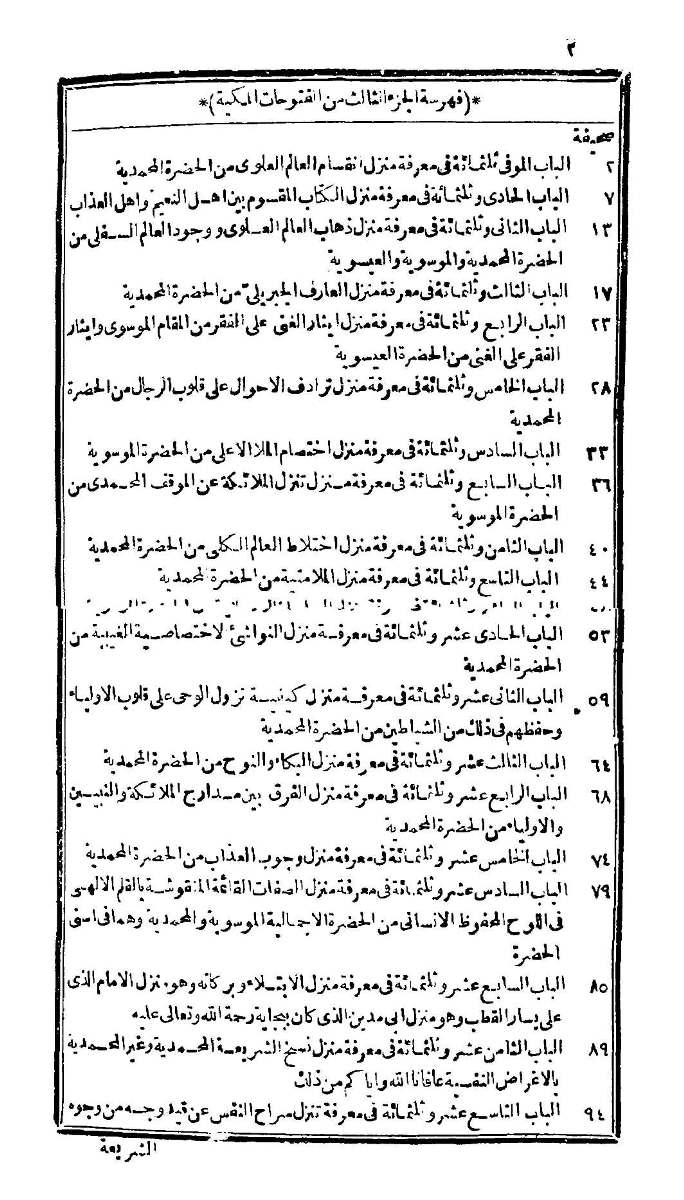 ٢
*(فهرسة الجزء الثالث من الفتوحات المكية)*
صحيفة
٢ الباب الموفى ثلثمائة فى معرفة منزل انقسام العالم العلوى من الحضرة المحمدية
٧ الباب الحادى وثلثمائة فى معرفة منزل الكتاب المقسوم بين اهل النعيم واهل العذاب
١٣ الباب الثانى وثلثمائة فى معرفة منزل ذهاب العالم العلوى ووجود العالم السفلى من
الحضرة المحمدية والموسوية والعيسوية
١٧ الباب الثالث وثلثمائة فى معرفة منزل العارف الجبريلى من الحضرة المحمدية
٢٣ الباب الرابع وثلثمائة فى معرفة منزل ايثار الغنى على الفقر من المقام الموسوى وايثار
الفقر على الغنى من الحضرة العيسوية
٢٨ الباب الخامس وثلثمائة فى معرفة منزل ترادف الاحوال على قلوب الرجال من الحضرة
المحمدية
٣٣ الباب السادس وثلثمائة فى معرفة منزل اختصام الملا الاعلى من الحضرة الموسوية
٣٦ الباب السابع وثلثمائة فى معرفة منزل تنزل الملائكة عن الموقف المحمدى من
الحضرة الموسوية
٤٠ الباب الثامن وثلثمائة فى معرفة منزل اختلاط العالم الكلى من الحضرة المحمدية
٤٤ الباب التاسع وثلثمائة فى معرفة منزل الملامتية من الحضرة المحمدية
٥٣ الباب الحادى عشر وثلثمائة فى معرفة منزل النواشئ الاختصاصية الغيبية من
الحضرة المحمدية
٥٩ الباب الثانى عشر وثلثمائة فى معرفة منزل كيفية نزول الوحى على قلوب الاولياء
وحفظهم فى ذلك من الشياطين من الحضرة المحمدية
٦٤ الباب الثالث عشر وثلثمائة فى معرفة منزل البكاء والنوح من الحضرة المحمدية
٦٨ الباب الرابع عشر وثلثمائة فى معرفة منزل الفرق بين مدارج الملائكة والنبيين
والاولياء من الحضرة المحمدية
٧٤ الباب الخامس عشر وثلثمائة فى معرفة منزل وجوب العذاب من الحضرة المحمدية
٧٩ الباب السادس عشر وثلثمائة فى معرفة منزل الصفات القائمة المنقوشة بالقلم الالهى
فى اللوح المحفوظ الانسانى من الحضرة الاجمالية الموسوية والمحمدية وهما فى اسنى
الحضرة
٨٥ الباب السابع عشر وثلثمائة فى معرفة منزل الابتلاء وبركاته وهو منزل الامام الذى
على يسار القطب وهو منزل ابى مدين الذى كان ببجاية رحمة الله وتعالى عليه
٨٩ الباب الثامن عشر وثلثمائة فى معرفة منزل نسخ الشريعة المحمدية وغير المحمدية
بالاغراض النفسية عافانا الله واياكم من ذلك
٩٤ الباب التاسع عشر وثلثمائة فى معرفة تنزل سراح النفس عن قيد وجه من وجوه
الشريعة